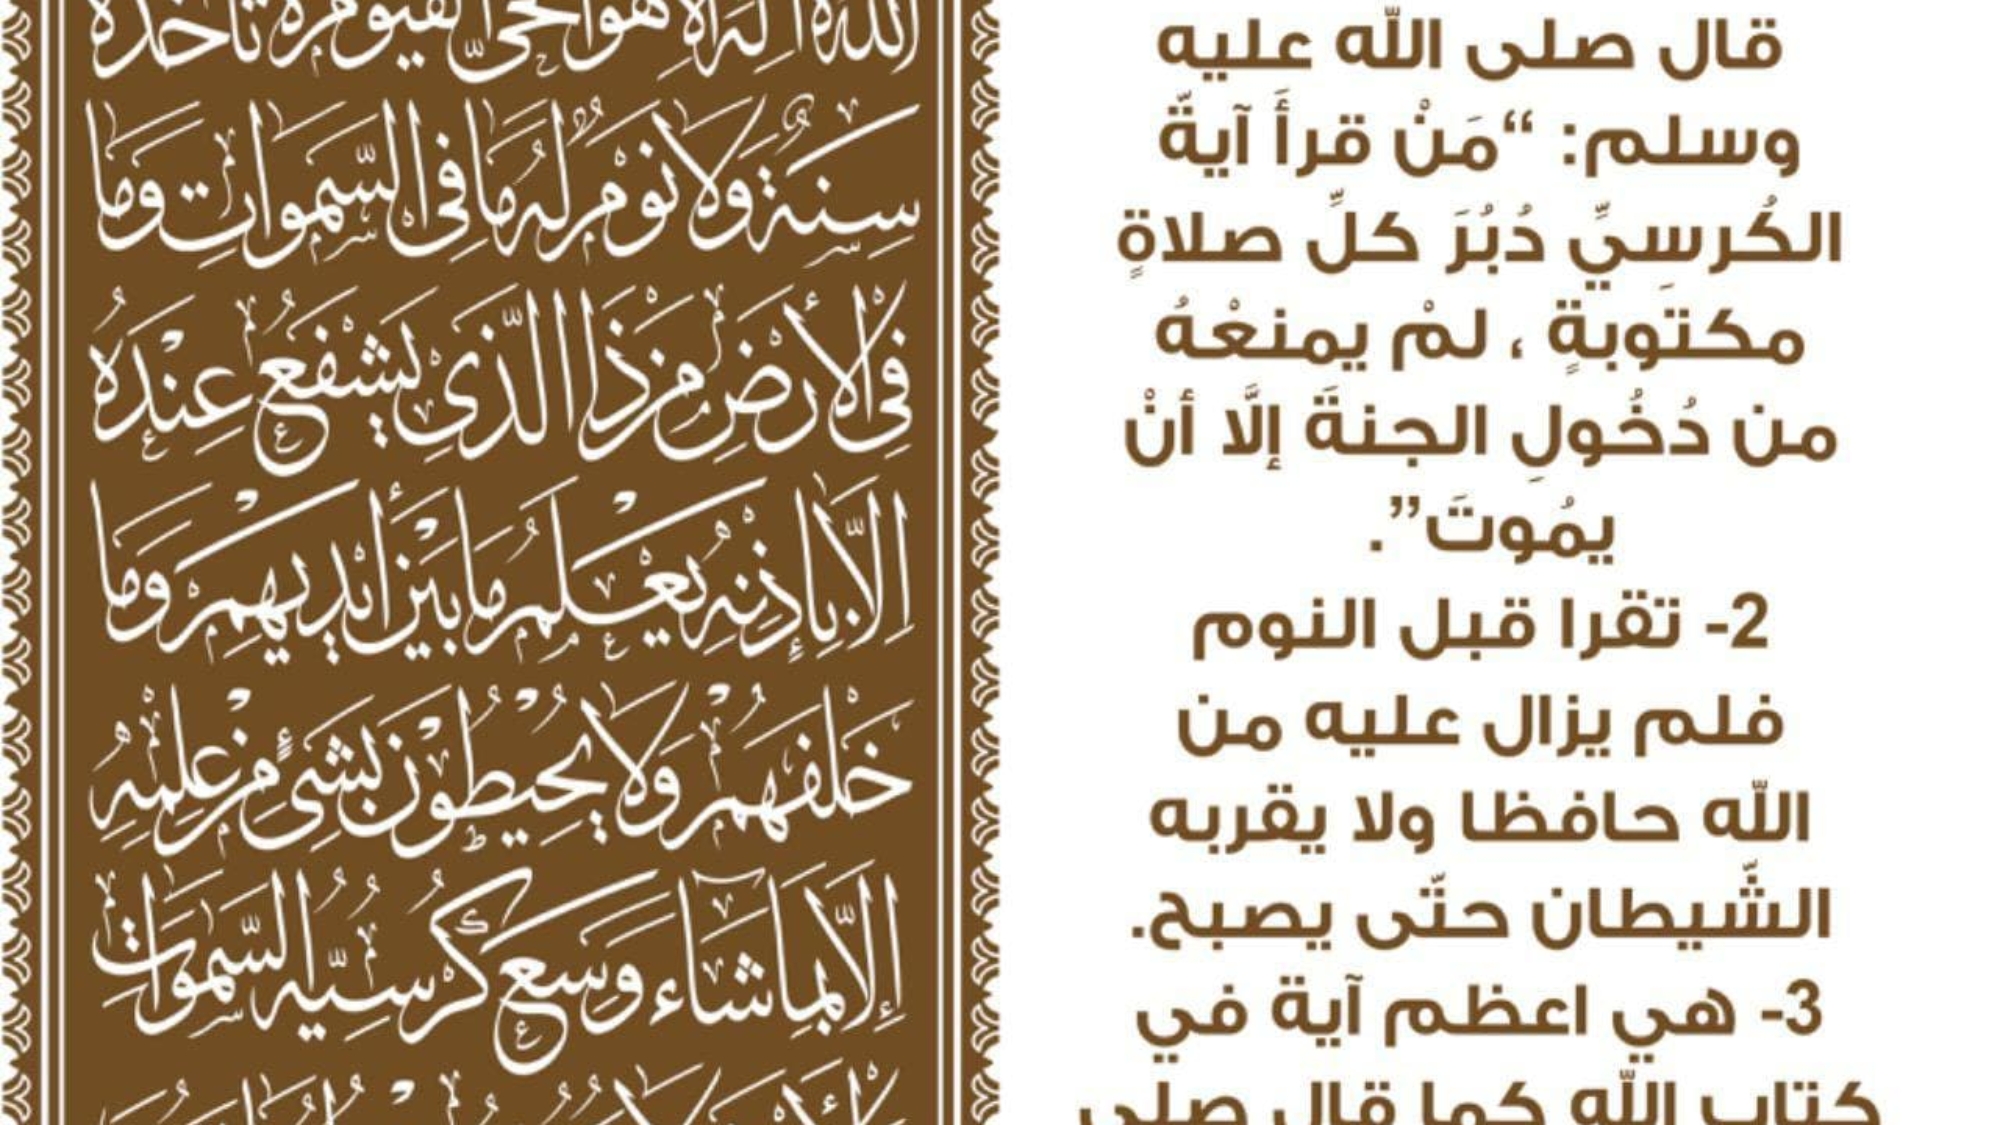 قال صلى الله عليه
وسلم: “مَنْ قرأَ آيةَ
الكُرسِيِّ دُبُرَ كلِّ صلاةٍ
مكتوبةٍ ، لمْ يمنعْهُ
من دُخُولِ الجنةَ إلَّا أنْ
يمُوتَ”.
2- تقرا قبل النوم
فلم يزال عليه من
الله حافظا ولا يقربه
الشَّيطان حتّى يصبح.
3- هي اعظم آية في
كتاب الله كما قال صلى
الله لا إله إلا هو الحي القيوم لا تأخذه
سِنَةٌ وَلَا نَوْمٌ لَهُ مَا فِي السَّمٰوَاتِ وَمَا
فِي الْأَرْضِ مَنْ ذَا الَّذِي يَشْفَعُ عِنْدَهُ
إِلَّا بِإِذْنِهِ يَعْلَمُ مَا بَيْنَ أَيْدِيهِمْ وَمَا
خَلْفَهُمْ وَلَا يُحِيطُونَ بِشَيْءٍ مِنْ عِلْمِهِ
إِلَّا بِمَا شَاءَ وَسِعَ كُرْسِيُّهُ السَّمٰوَاتِ